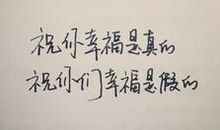 祝你幸福是真的
祝你们幸福是假的